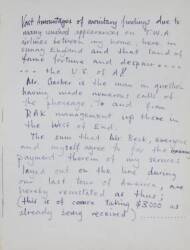 Vast Amountages of monetary fundings due to
many unused appearances on T.W.A
airlines between my home, here in
sunny England and that land of
fame fortune and despair ....
... the U.S of A!!
Mr. Barker is the man in question
having made numerous calls of
the phoneage to and from
RAK management up there in
the West of End.
The sum that Mr Beck, everyone
and myself agree to for the
payment therein of my services
laid out on the line during
our last tour of America, are
hereby remitted as thus;
(this is of course taking $3000 as
already being received)